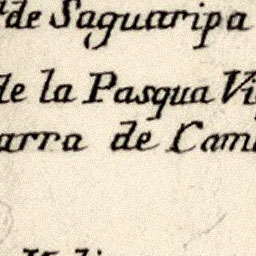 de Saguaripa
de la Pasqua Vi
arra de Cam